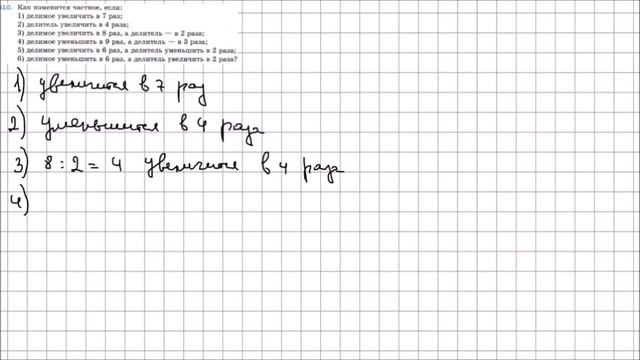 510. Как изменится частное, если:
1) делимое увеличить в 7 раз;
2) делитель увеличить в 4 раза;
3) делимое увеличить в 8 раз, а делитель — в 2 раза;
4) делимое уменьшить в 9 раз, а делитель — в 3 раза;
5) делимое увеличить в 6 раз, а делитель уменьшить в 2 раза;
6) делимое уменьшить в 6 раз, а делитель увеличить в 2 раза?
1) увеличится в 7 раз
2) уменьшится в 4 раза
3) 8 : 2 = 4 увеличится в 4 раза
4)